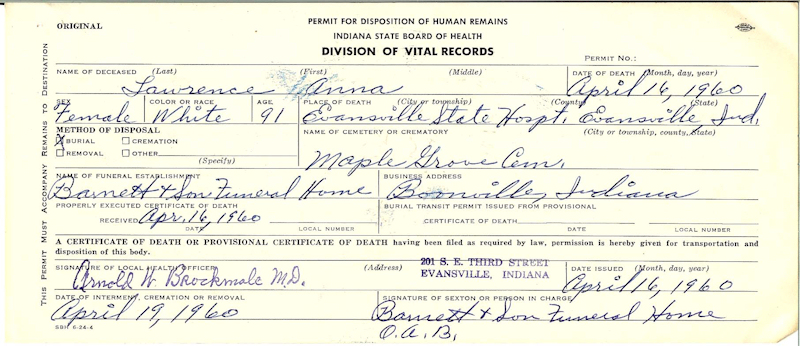 ORIGINAL
PERMIT FOR DISPOSITION OF HUMAN REMAINS
INDIANA STATE BOARD OF HEALTH
DIVISION OF VITAL RECORDS
PERMIT NO.:
THIS PERMIT MUST ACCOMPANY REMAINS TO DESTINATION
NAME OF DECEASED (Last) (First) (Middle) DATE OF DEATH (Month, day, year)
Lawrence Anna April 16, 1960
SEX COLOR OR RACE AGE PLACE OF DEATH (City or township) (County) (State)
Female White 91 Evansville State Hospt. Evansville, Ind.
METHOD OF DISPOSAL NAME OF CEMETERY OR CREMATORY (City or township, county, State)
X BURIAL CREMATION
REMOVAL OTHER
(Specify)
Maple Grove Cem.
NAME OF FUNERAL ESTABLISHMENT BUSINESS ADDRESS
Barnett & Son Funeral Home Boonville, Indiana
PROPERLY EXECUTED CERTIFICATE OF DEATH BURIAL TRANSIT PERMIT ISSUED FROM PROVISIONAL
RECEIVED Apr. 16, 1960 CERTIFICATE OF DEATH
DATE LOCAL NUMBER DATE LOCAL NUMBER
A CERTIFICATE OF DEATH OR PROVISIONAL CERTIFICATE OF DEATH having been filed as required by law, permission is hereby given for transportation and
disposition of this body.
SIGNATURE OF LOCAL HEALTH OFFICER (Address) 201 S. E. THIRD STREET DATE ISSUED (Month, day, year)
EVANSVILLE, INDIANA
Arnold W. Brockmole M.D. April 16, 1960
DATE OF INTERMENT, CREMATION OR REMOVAL SIGNATURE OF SEXTON OR PERSON IN CHARGE
April 19, 1960 Barnett & Son Funeral Home
SBH 6-24-4 O.A.B.